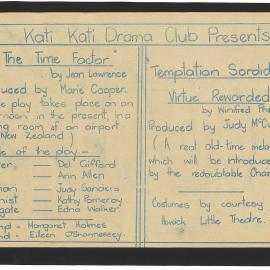 Kati Kati Drama Club Presents
The Time Factor"
by Jean Lawrence
uced by Marie Cooper.
e play takes place on an
noon in the present, in a
ng room of an airport
New Zealand)
e of the play —
er — Del Gifford
— Ann Allen
nari — Judy Sanders
onist — Kathy Pomeroy
gate — Edna Walker.
nd - Margaret Holmes
nd - Eileen O'Shannessey.
"Temptation Sordid
Virtue Rewarded
by Winifred Phe
Produced by Judy McC
( A real old-time melo
which will be introduce
by the redoubtable Chair
Costumes by courtesy
Howick Little Theatre.